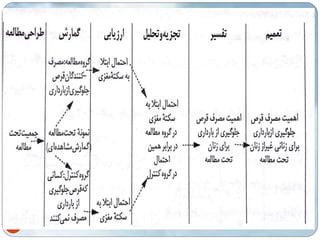 طراحی مطالعه
گمارش
ارزیابی
تجزیه و تحلیل
تفسیر
تعمیم
جمعیت تحت
مطالعه
گروه مطالعه: مصرف
کنندگان قرص
جلوگیری از بارداری
نمونهٔ تحت مطالعه
(گمارش مشاهده‌ای)
گروه کنترل: کسانی
که قرص جلوگیری
از بارداری
مصرف نمی‌کنند
احتمال ابتلا
به سکتهٔ مغزی
احتمال ابتلا به
سکتهٔ مغزی
احتمال ابتلا به
سکتهٔ مغزی
در گروه مطالعه
در برابر همین
احتمال
در گروه کنترل
اهمیت مصرف قرص
جلوگیری از بارداری
برای زنان
تحت مطالعه
اهمیت مصرف قرص
جلوگیری از بارداری
برای زنانی غیر از زنان
تحت مطالعه